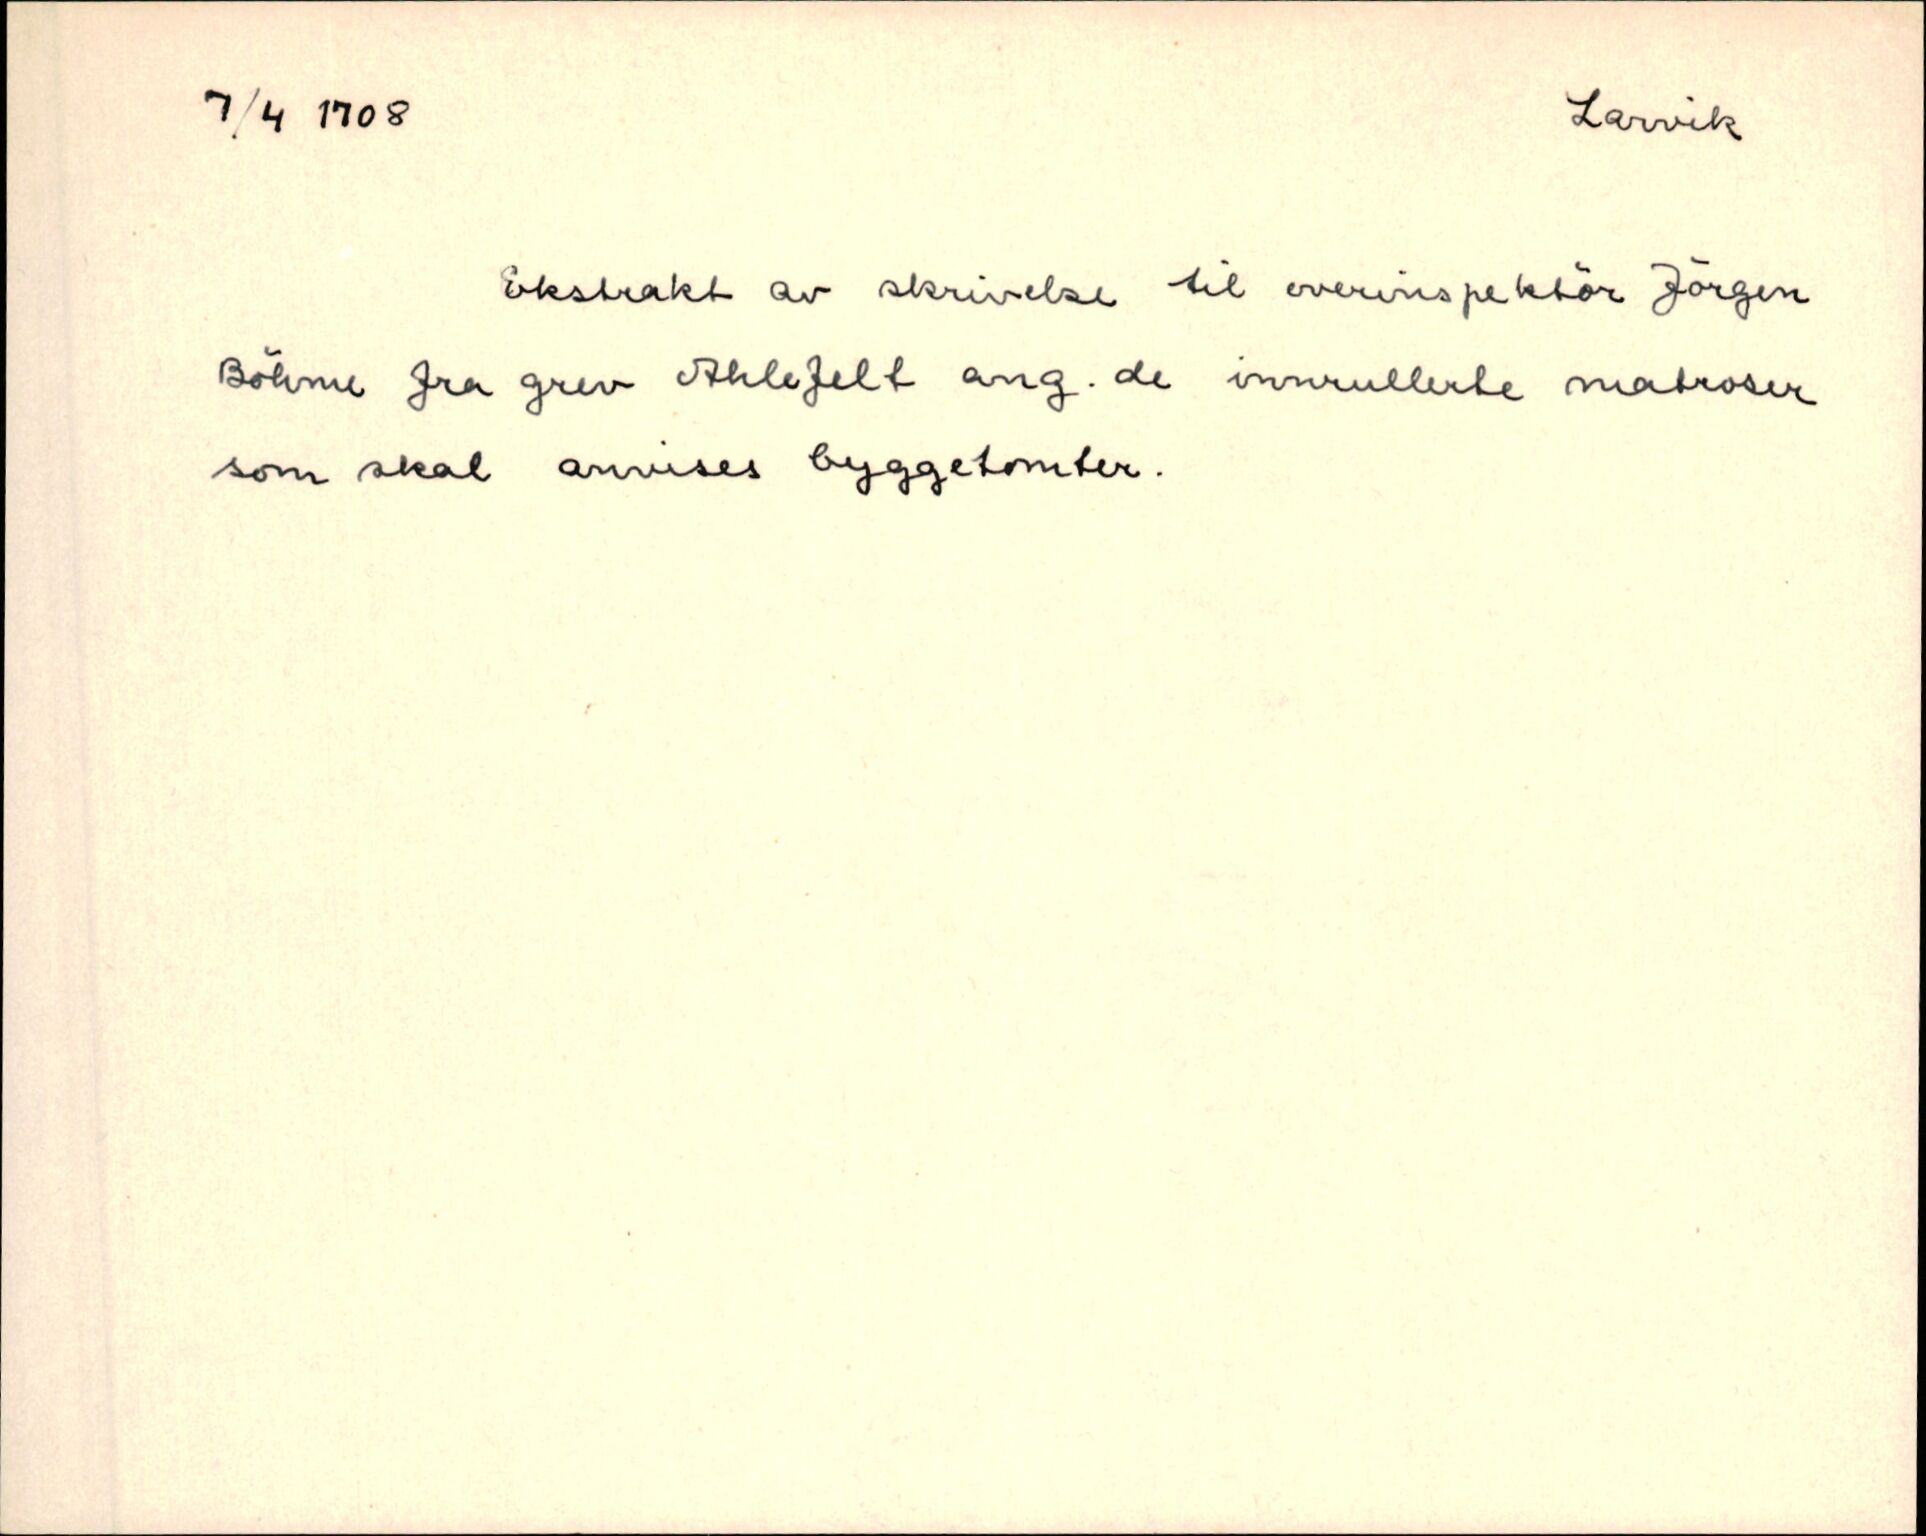 7/4 1708 Larvik
Ekstrakt av skrivelse til overinspektör Jörgen
Böhme fra grev Ahlefelt ang. de innrullerte matroser
som skal anvises byggetomter.